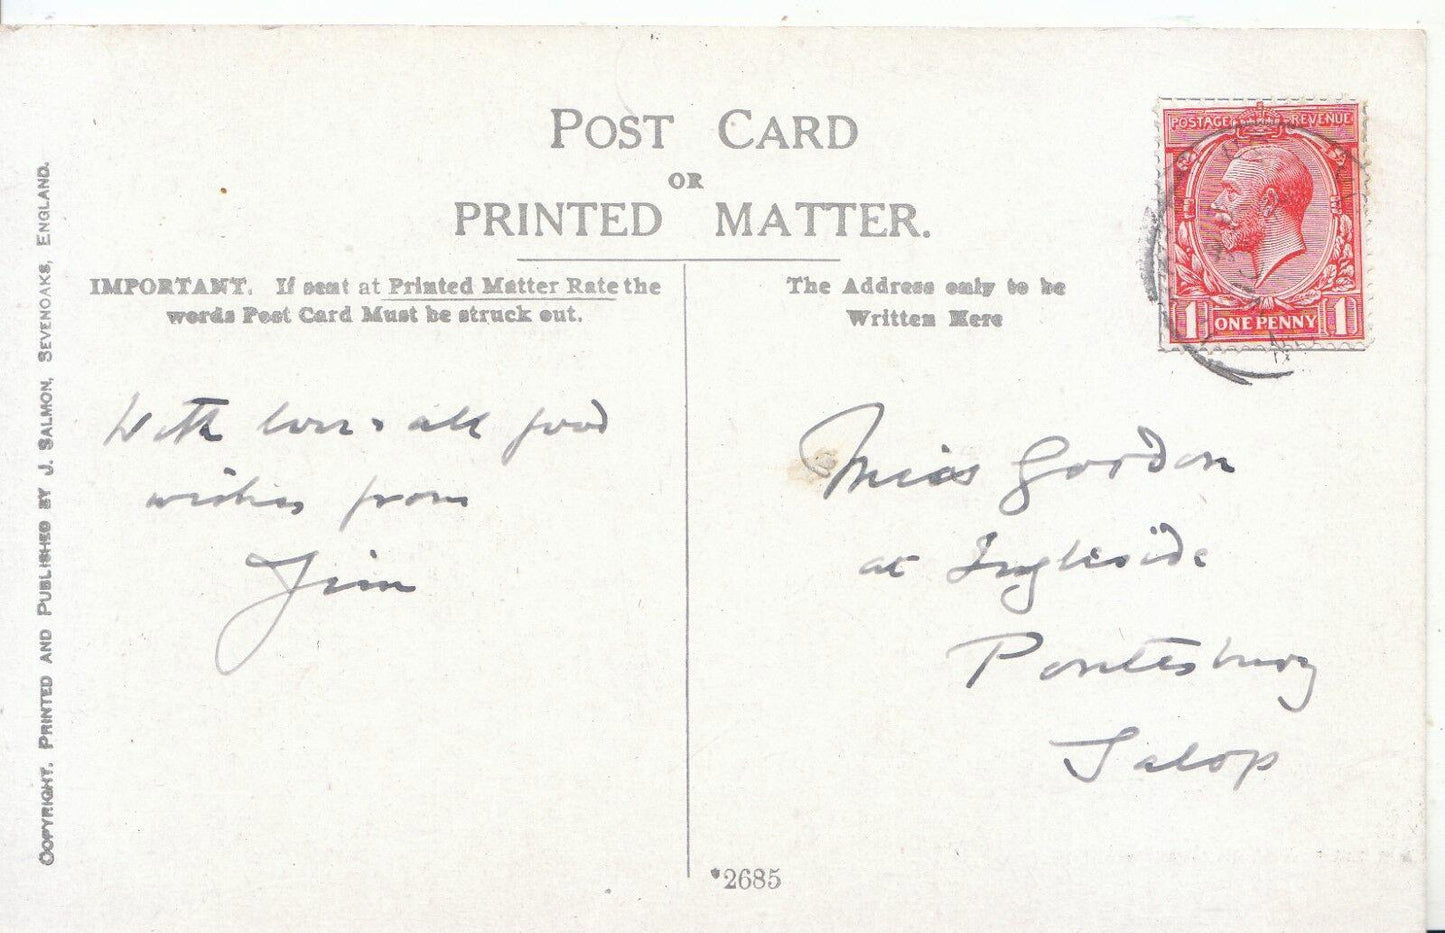 POST CARD
OR
PRINTED MATTER.
IMPORTANT. If sent at Printed Matter Rate the
words Post Card Must be struck out.
The Address only to be
Written Here
POSTAGE REVENUE
1 ONE PENNY 1
With love & all good
wishes from
Jim
Miss Gordon
at Ingleside
Pontesbury
Salop
*2685
COPYRIGHT. PRINTED AND PUBLISHED BY J. SALMON, SEVENOAKS, ENGLAND.